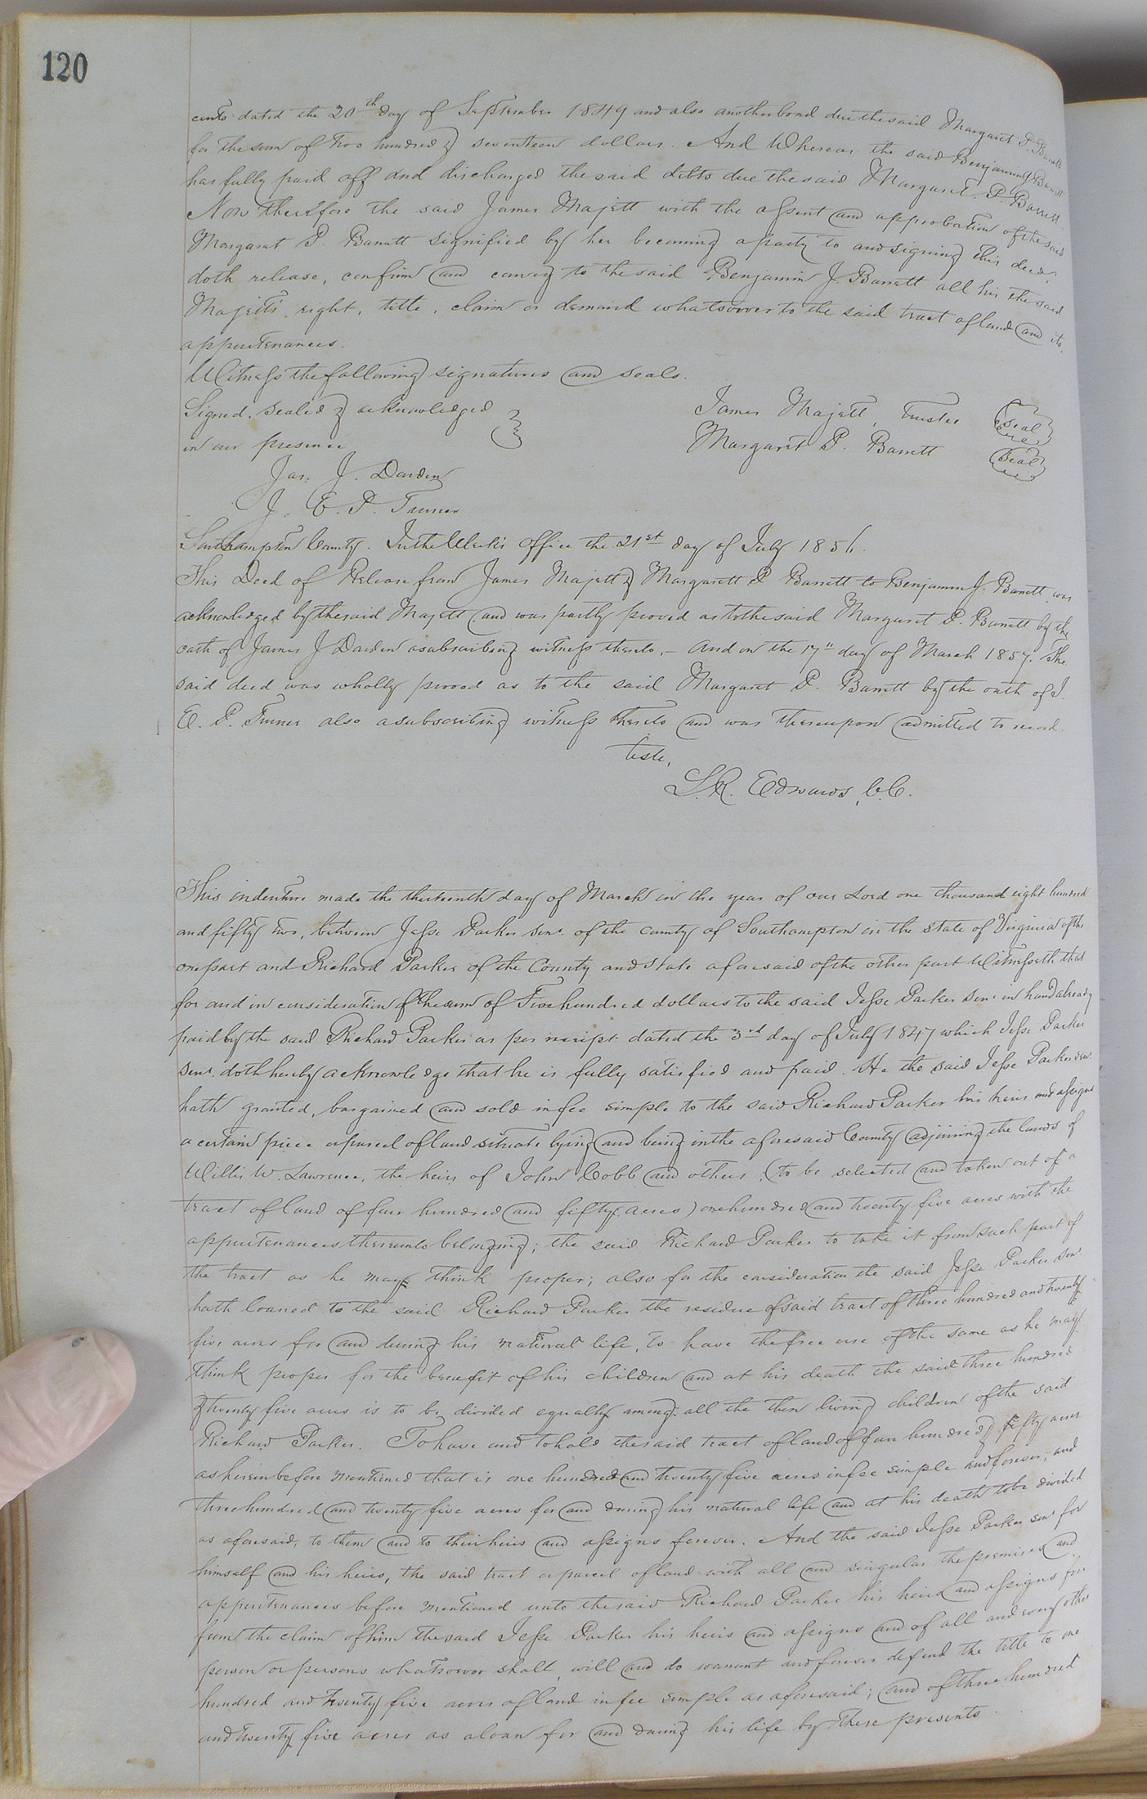 120
cents dated the 20th day of September 1849 and also another bond due the said Margaret P. Barrett
for the sum of Two hundred & seventeen dollars. And Whereas the said Benjamin J. Barrett
has fully paid off and discharged the said debts due the said Margaret P. Barrett
Now therefore the said James Majett with the assent and approbation of the said
Margaret P. Barrett signified by her becoming a party to and signing this deed,
doth release, confirm and convey to the said Benjamin J. Barrett all his the said
Majett's right, title, claim or demand whatsoever to the said tract of land and its
appurtenances.
Witness the following signatures and seals.
Signed, sealed & acknowledged James Majett, Trustee Seal
in our presence Margaret P. Barrett Seal
Jas. J. Darden
J. E. P. Turner
Southampton County. In the Clerk's Office the 21st day of July 1856.
This Deed of Release from James Majett & Margarett P Barrett to Benjamin J. Barrett was
acknowledged by the said Majett and was partly proved as to the said Margaret P. Barrett by the
oath of James J Darden a subscribing witness thereto, - And on the 17th day of March 1857. The
said deed was wholly proved as to the said Margaret P. Barrett by the oath of J.
E. P. Turner also a subscribing witness thereto and was thereupon admitted to record.
Teste,
L. R. Edwards, C.C.
This indenture made the thirteenth day of March in the year of our Lord one thousand eight hundred
and fifty two, between Jesse Parker senr. of the county of Southampton in the state of Virginia of the
one part and Richard Parker of the County and state aforesaid of the other part Witnesseth that
for and in consideration of the sum of Five hundred dollars to the said Jesse Parker senr in hand already
paid by the said Richard Parker as per receipt dated the 3rd day of July 1847 which Jesse Parker
senr. doth hereby acknowledge that he is fully satisfied and paid. He the said Jesse Parker senr
hath granted, bargained and sold in fee simple to the said Richard Parker his heirs and assigns
a certain piece or parcel of land situate lying and being in the aforesaid County adjoining the lands of
Willis W. Lawrence, the heirs of John Cobb and others, (to be selected and taken out of a
tract of land of four hundred and fifty acres) one hundred and twenty five acres with the
appurtenances thereunto belonging; the said Richard Parker to take it from such part of
the tract as he may think proper; also for the consideration the said Jesse Parker senr
hath loaned to the said Richard Parker the residue of said tract of three hundred and twenty
five acres for and during his natural life, to have the free use of the same as he may
think proper for the benefit of his children and at his death the said three hundred
& twenty five acres is to be divided equally among all the then living children of the said
Richard Parker. To have and to hold the said tract of land of four hundred & fifty acres
as herein before mentioned that is one hundred and twenty five acres in fee simple and forever, and
three hundred and twenty five acres for and during his natural life and at his death to be divided
as aforesaid, to them and to their heirs and assigns forever. And the said Jesse Parker senr for
himself and his heirs, the said tract or parcel of land with all and singular the premises and
appurtenances before mentioned unto the said Richard Parker his heirs and assigns free
from the claim of him the said Jesse Parker his heirs and assigns and of all and every other
person or persons whatsoever shall, will and do warrant and forever defend the title to one
hundred and twenty five acres of land in fee simple as aforesaid; and of three hundred
and twenty five acres as a loan for and during his life by these presents.